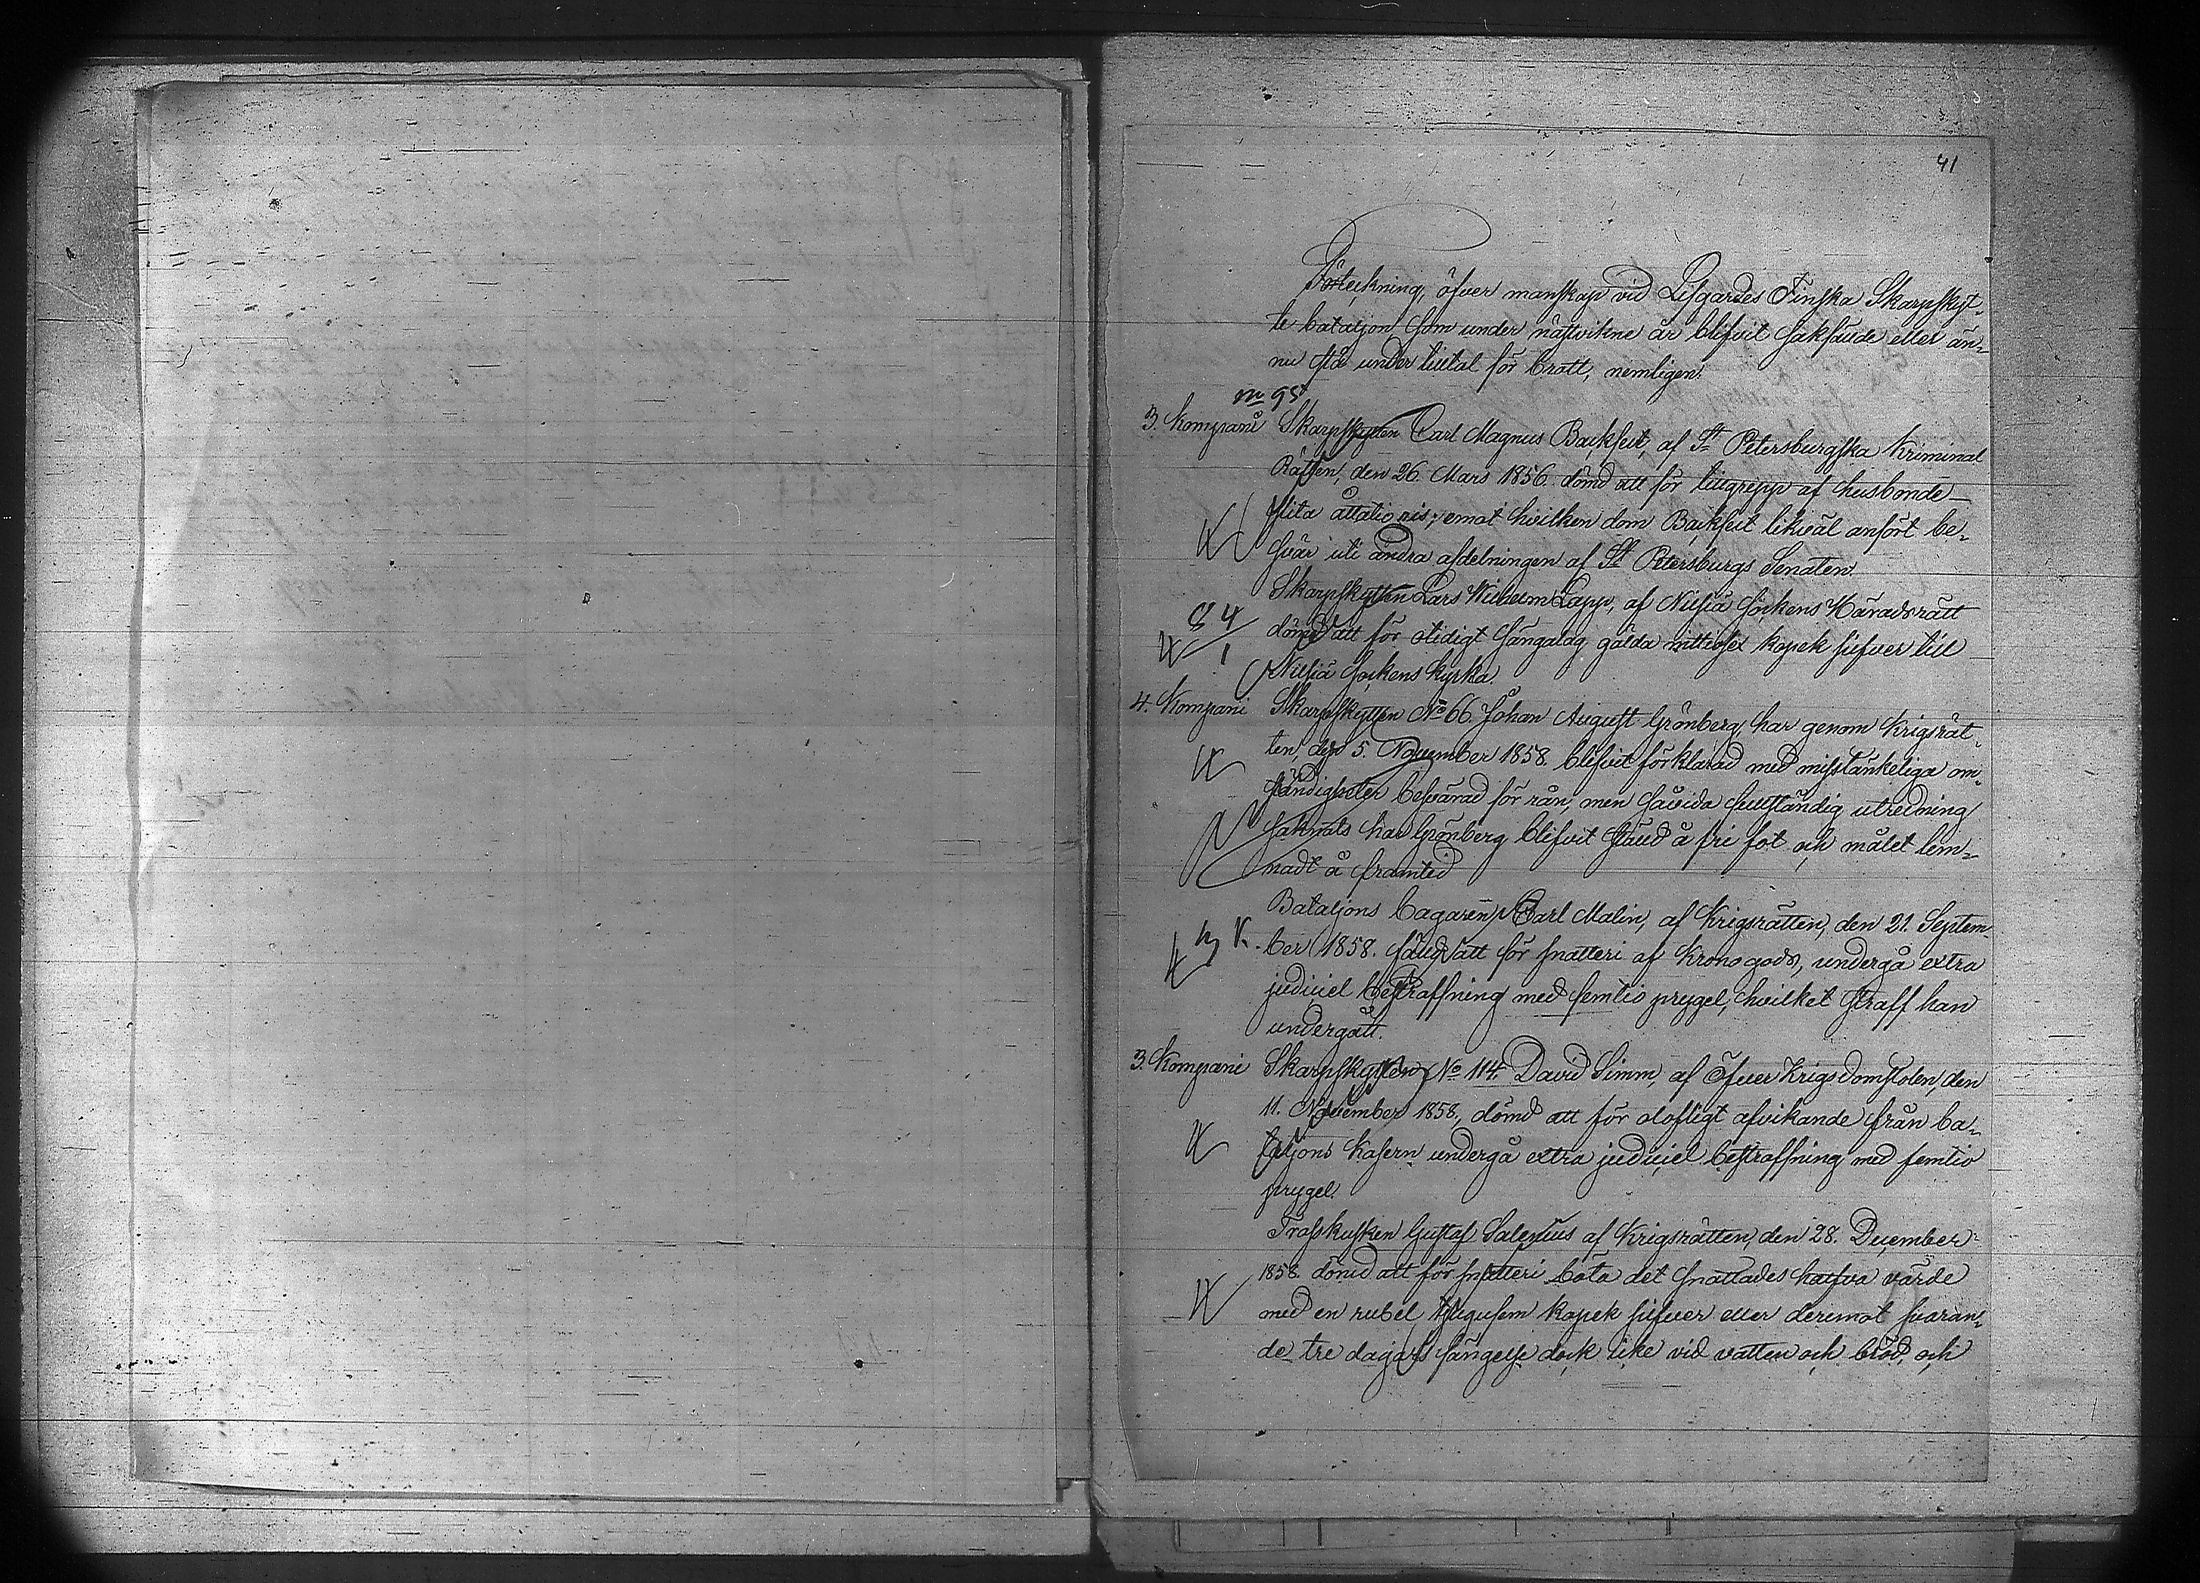 41
Förteckning, öfver manskap vid Lifgardes Finska Skarpskyt-
te bataljon som under nästvikne år blifvit sakfälde eller än-
nu stå under tilltal för brott, nemligen:
No 95
3. Kompani Skarpskytten Carl Magnus Backfelt, af St Petersburgska Kriminal
Rätten, den 26. Mars 1856. dömd att för tillgrepp af husbonde
slita åttatio ris; emot hvilken dom Backfelt likväl anfört be-
svär uti andra afdelningen af St Petersburgs Senaten.
Skarpskytten Lars Wilhelm Lapp, af Nilsiä Sockens Häradsrätt
84
1
dömd att för otidigt sängalag gälda nittiosex kopek silfver till
Nilsiä Sockens kyrka.
4. Kompani Skarpskytten No 66. Johan August Grönberg, har genom Krigsrät-
ten, den 5. November 1858. blifvit förklarad med misstänkeliga om-
ständigheter besvärad för rån, men såvida fullständig utredning
saknats har Grönberg blifvit ställd å fri fot och målet lem-
nadt å framtid
Bataljons bagaren, Carl Malin, af Krigsrätten, den 21. Septem-
ber 1858. fälld att för snatteri af Kronogods, undergå extra
judiciel bestraffning med femtio prygel, hvilket straff han
undergått.
3. Kompani Skarpskytten No 114. David Simm, af Öfver Krigsdomstolen, den
11. November 1858., dömd att för olofligt afvikande från ba-
taljons Kasern undergå extra judiciel bestraffning med femtio
prygel.
Trosskusken Gustaf Salenius af Krigsrätten, den 28. December
1858. dömd att för snatteri böta det snattades halfva värde
med en rubel tjugufem kopek silfver eller deremot svaran-
de tre dagars fängelse dock icke vid vatten och bröd, och